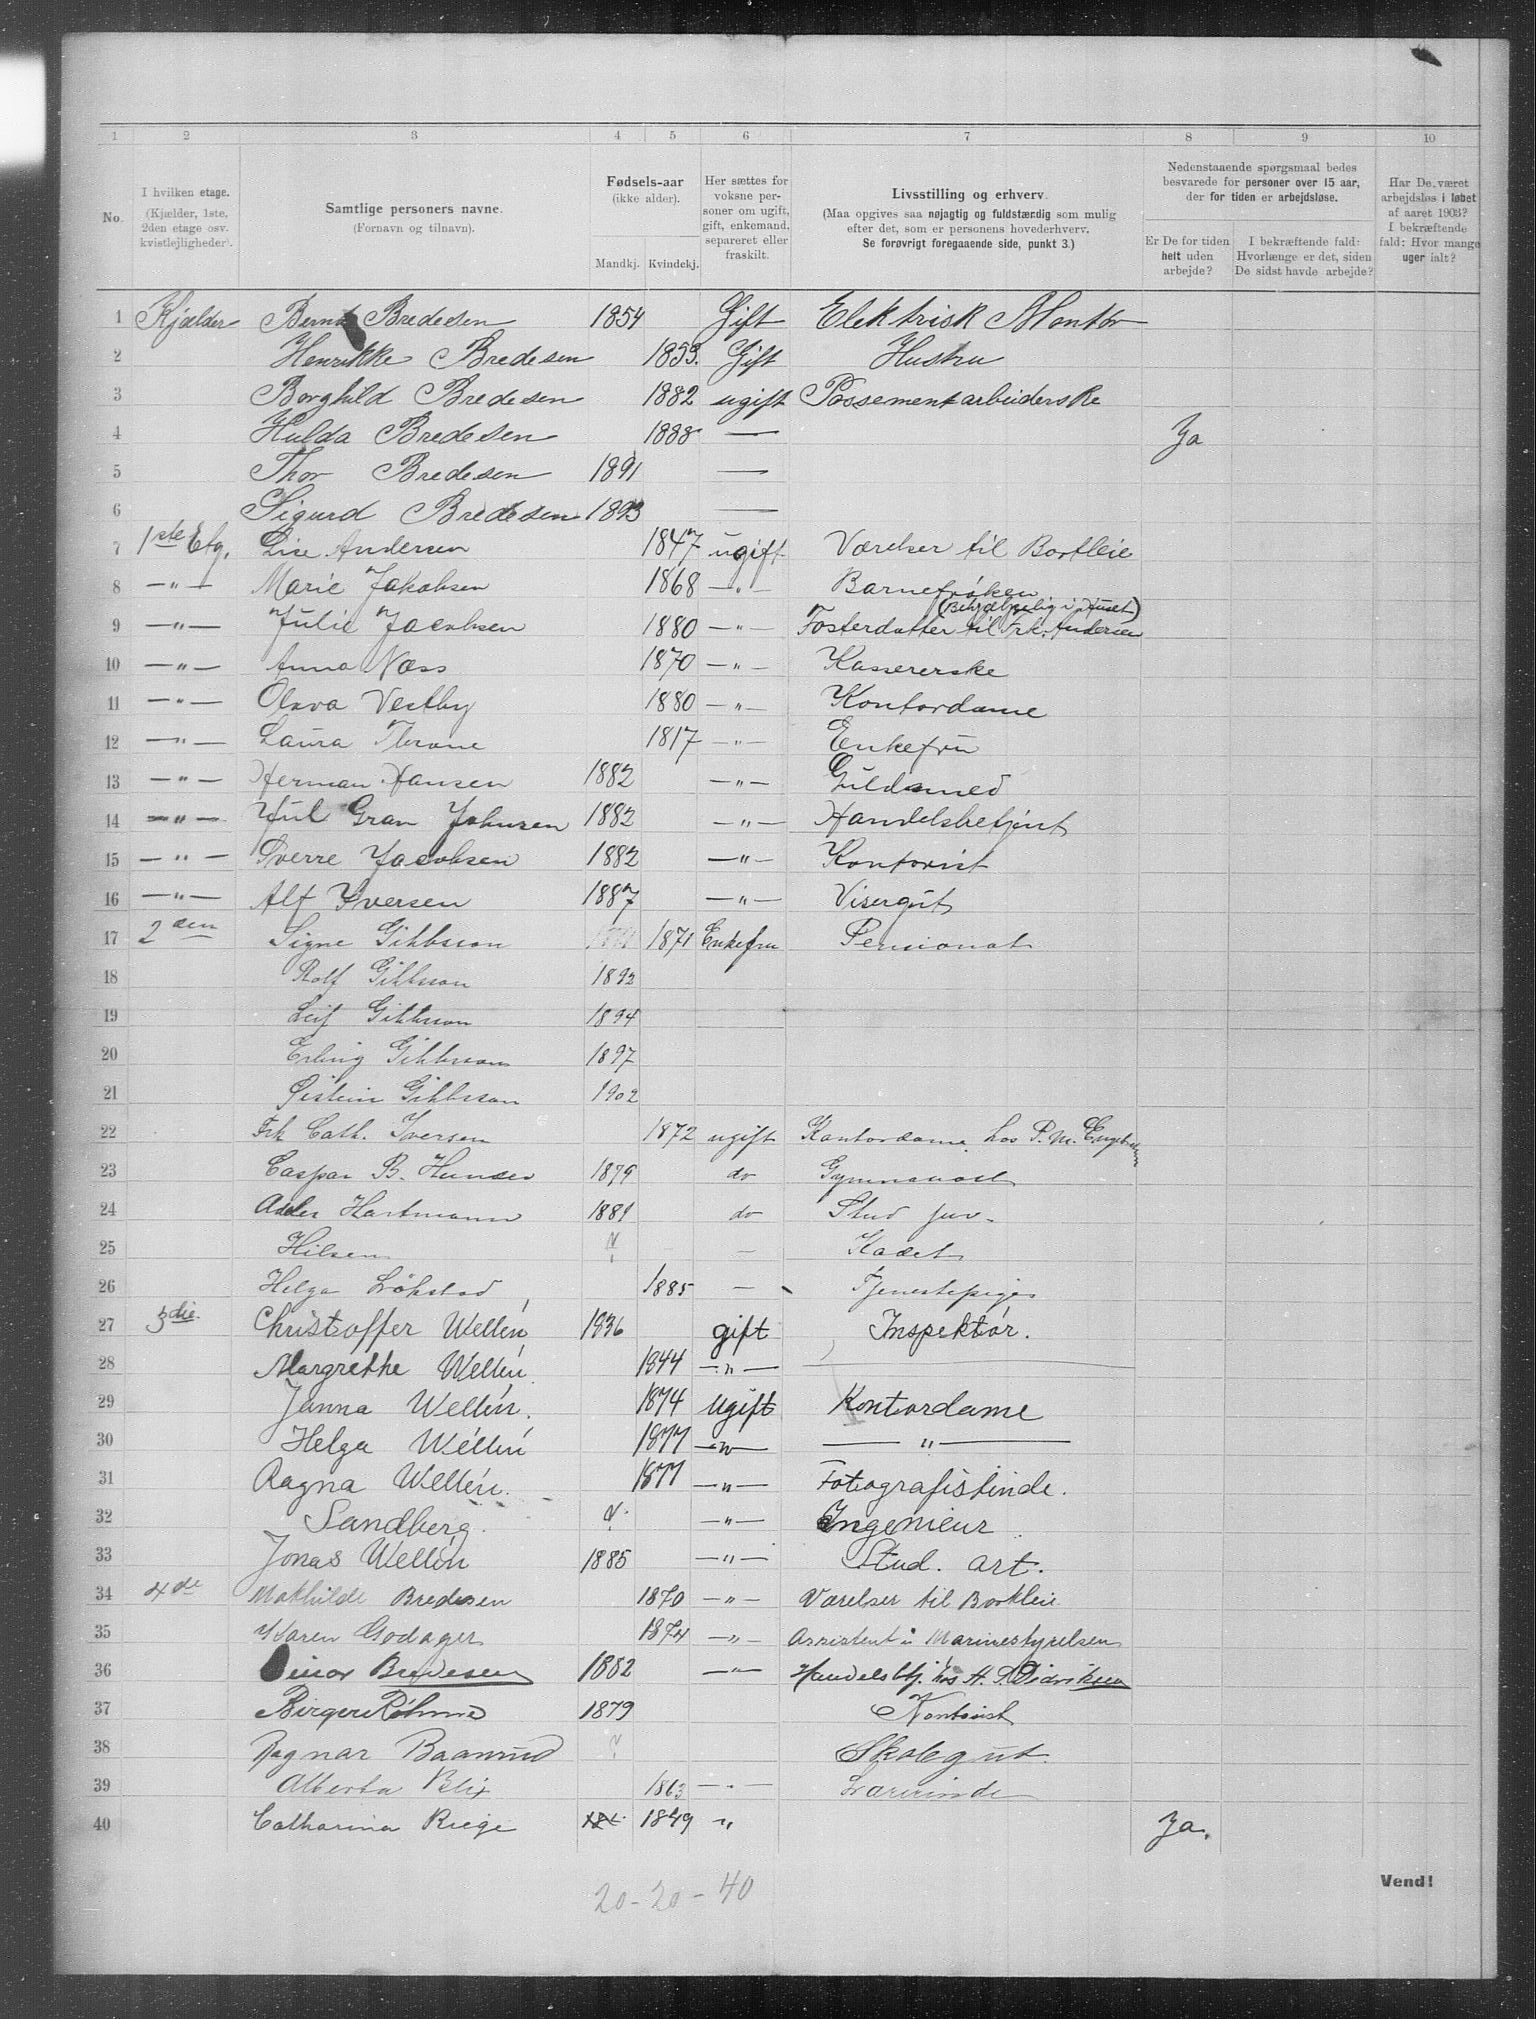 1 2 3 4 5 6 7 8 9 10
No.
I hvilken etage.
(Kjælder, 1ste, 2den etage osv. kvistlejligheder).
Samtlige personers navne.
(Fornavn og tilnavn).
Fødsels-aar
(ikke alder).
Mandkj. Kvindekj.
Her sættes for voksne personer om ugift, gift, enkemand, separeret eller fraskilt.
Livsstilling og erhverv.
(Maa opgives saa nøjagtig og fuldstændig som mulig efter det, som er personens hovederhverv.
Se forøvrigt foregaaende side, punkt 3.)
Nedenstaaende spørgsmaal bedes besvarede for personer over 15 aar, der for tiden er arbejdsløse.
Er De for tiden helt uden arbejde?
I bekræftende fald: Hvorlænge er det, siden De sidst havde arbejde?
Har De været arbejdsløs i løbet af aaret 1903? I bekræftende fald: Hvor mange uger ialt?
1 Kjælder Bernt Bredesen 1854 Gift Elektrisk Montør
2 Henrikke Bredesen 1853. Gift Hustru
3 Borghild Bredesen 1882 ugift Possementarbeiderske
4 Hulda Bredesen 1888 — Ja
5 Thor Bredesen 1891 —
6 Sigurd Bredesen 1893 —
7 1ste Etg. Lise Andersen 1847 ugift Værelser til Bortleie
8 —"— Marie Jakobsen 1868 —"— Barnefrøken
(Behjælpelig i Huset)
9 —"— Julie Jacobsen 1880 —"— Fosterdatter til Frk. Andersen
10 —"— Anna Næss 1870 —"— Kassererske
11 —"— Olava Vestby 1880 —"— Kontordame
12 —"— Laura Throne 1817 —"— Enkefru
13 —"— Herman Hansen 1882 —"— Guldsmed
14 —"— Hjul Gran Johnsen 1882 —"— Handelsbetjent
15 —"— Sverre Jacobsen 1882 —"— Kontorist
16 —"— Alf Iversen 1887 —"— Visergut
17 2den Signe Gibbsson 1871 Enkefru Pensionat
18 Rolf Gibbsson 1892
19 Leif Gibbsson 1894
20 Erling Gibbsson 1897
21 Øistein Gibbsson 1902
22 Frk Cath. Iversen 1872 ugift Kontordame hos P. M.
23 Caspar B. 1879 do Gymnanast
24 Hartmann 1881 do Stud jur.
25 Hilsen ? — Kadet
26 Helga Løkstad 1885 — Tjenestepige
27 3die. Christoffer Wellén 1836 gift Inspektør.
28 Margrethe Wellén. 1844 —"— —
29 Janna Wellén. 1874 Ugift Kontordame
30 Helga Wellén 1877 —"— —"—
31 Ragna Wellén. 1877 —"— Fotografistinde.
32 Sandberg. ? —"— Ingenieur.
33 Jonas Wellén 1885 —"— Stud. art.
34 4de Mathilde Bredesen 1870 —"— Værelser til Bortleie
35 Karen Godager 1874 —"— Assistent i Marinestyrelsen
36 Einar Bredesen 1882 —"— Handelsbtj. hos H. P. Didriksen
37 Birger Røhme 1879 Kontorist
38 Ragnar Baanrud ? Skolegut.
39 Alberta Blix 1863 —"— Lærerinde
40 Catharina Riege 1849 " Ja.
Vend!
20 - 20 - 40